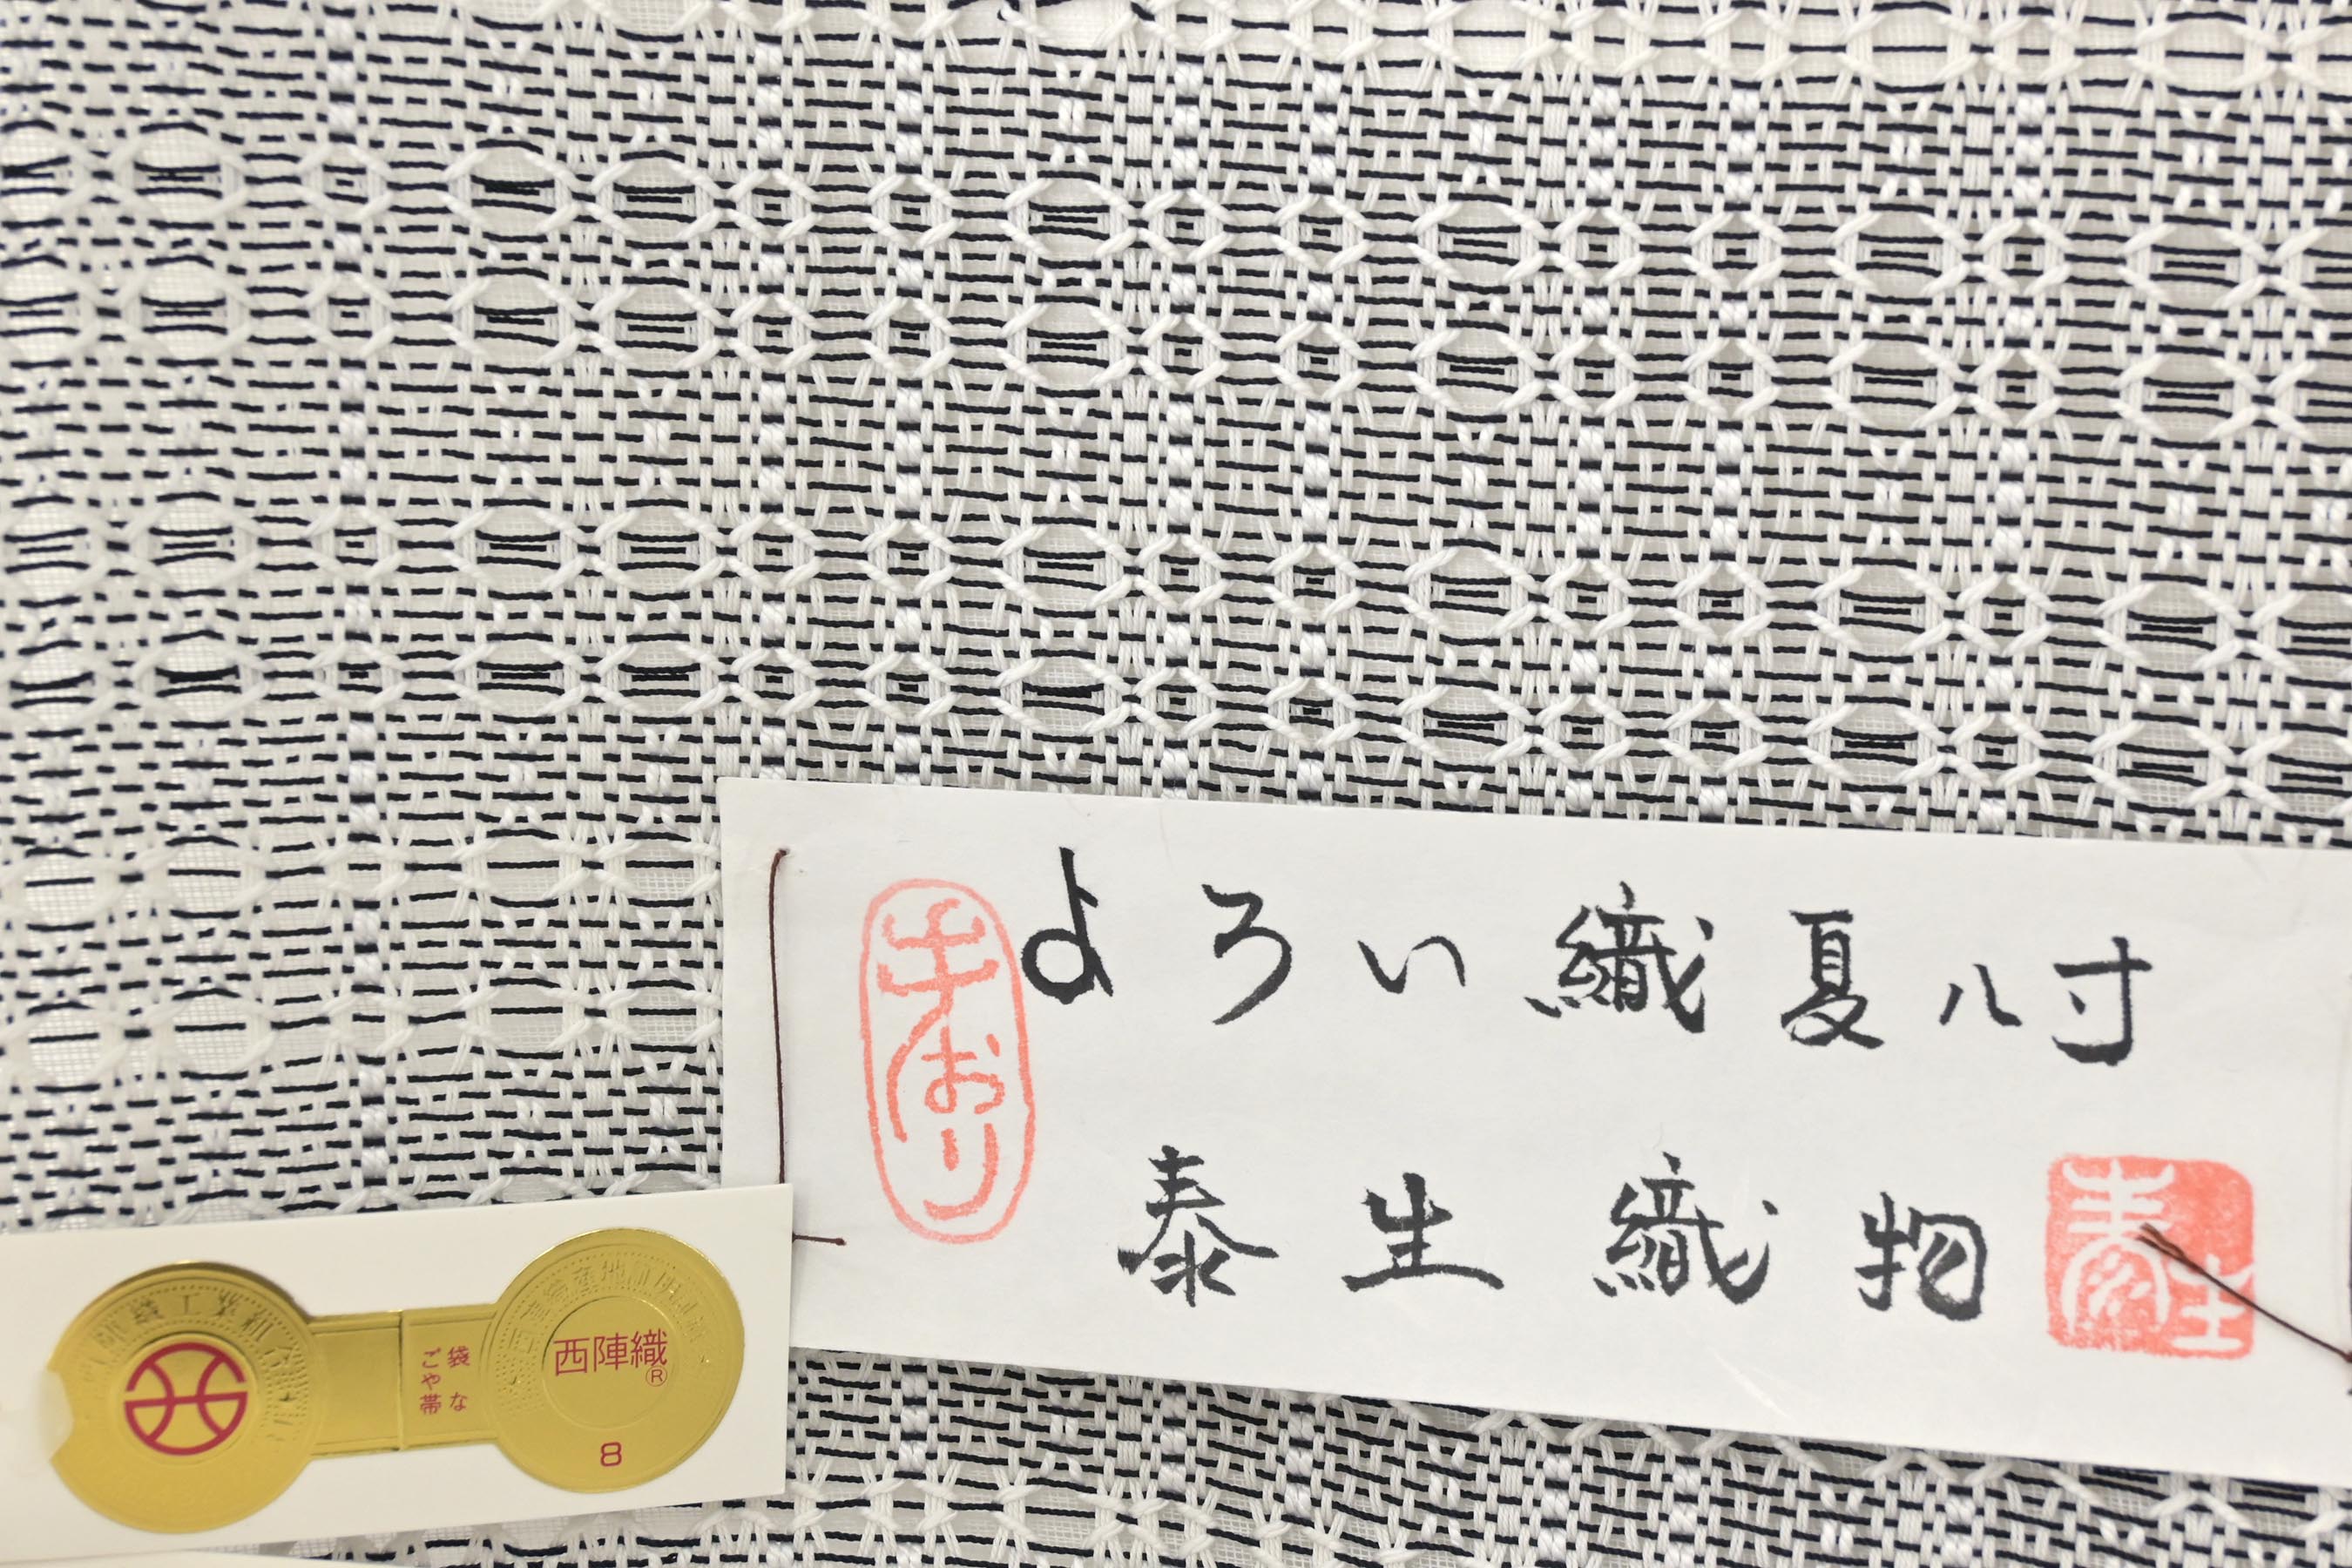 よろい織夏八寸
泰生織物
手おり
泰生
西陣織®
8
袋な
ごや帯